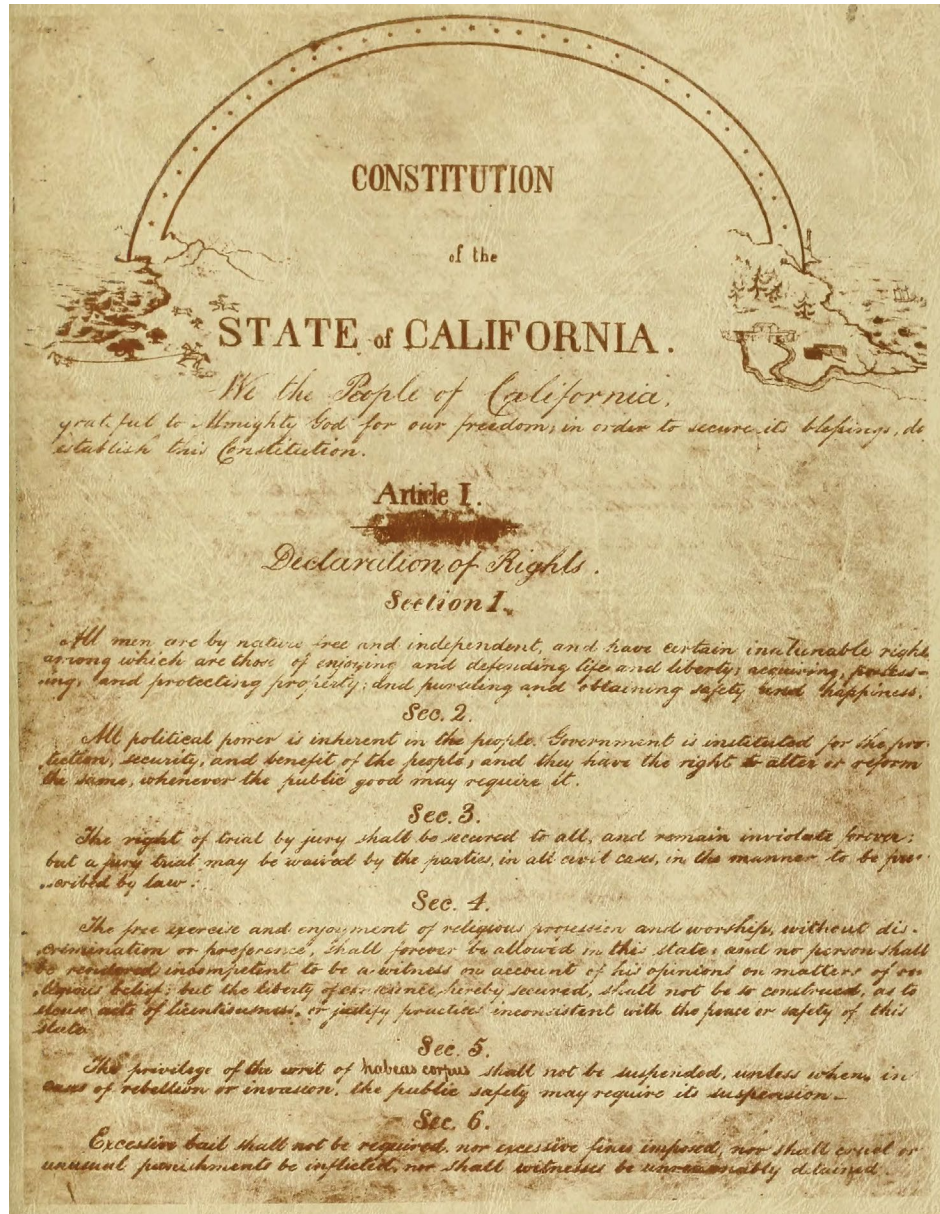 CONSTITUTION
of the
STATE of CALIFORNIA.
We the People of California,
grateful to Almighty God for our freedom; in order to secure its blessings, do
establish this Constitution.
Article I.
Declaration of Rights.
Section I.
All men are by nature free and independent, and have certain inalienable right
among which are those of enjoying and defending life and liberty; acquiring, possess-
ing, and protecting property; and pursuing and obtaining safety and happiness.
Sec. 2.
All political power is inherent in the people. Government is instituted for the pro-
tection, security, and benefit of the people; and they have the right to alter or reform
the same, whenever the public good may require it.
Sec. 3.
The right of trial by jury shall be secured to all, and remain inviolate forever;
but a jury trial may be waived by the parties, in all civil cases, in the manner to be pre-
scribed by law.
Sec. 4.
The free exercise and enjoyment of religious profession and worship, without dis-
crimination or preference, shall forever be allowed in this state: and no person shall
be rendered incompetent to be a witness on account of his opinions on matters of re-
ligious belief; but the liberty of conscience, hereby secured, shall not be so construed, as to
acts of licentiousness, or justify practices inconsistent with the peace or safety of this
state
Sec. 5.
The privilege of the writ of habeas corpus shall not be suspended, unless when, in
cases of rebellion or invasion, the public safety may require its suspension.
Sec. 6.
Excessive bail shall not be required, nor excessive fines imposed, nor shall cruel or
unusual punishments be inflicted, nor shall witnesses be unreasonably detained.